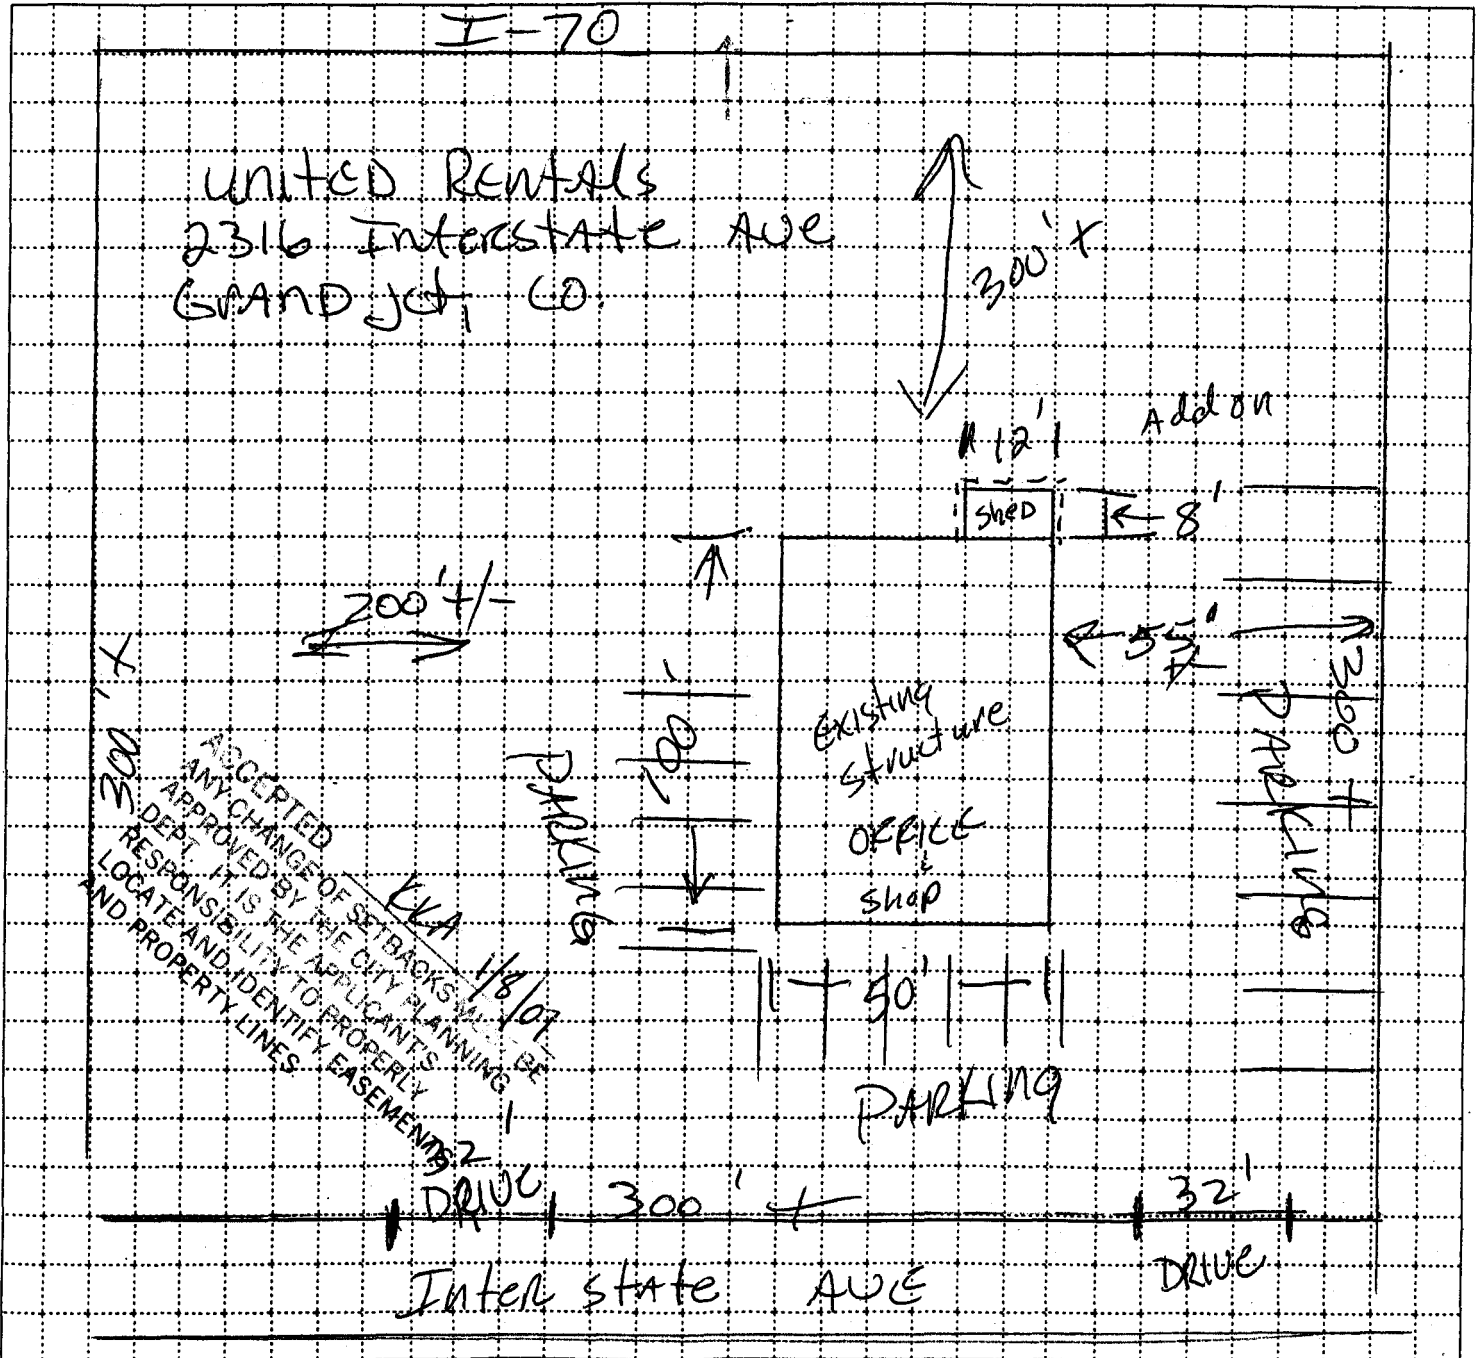 I-70
UNITED RENTAls
2316 InterstAte Ave
GRAND Jct, CO.
300' ±
Add on
12'
Shed
8'
200' +/-
55' +/-
300' ±
300' ±
100'
Existing
structure
OFFICE
&
Shop
PARKING
PARKING
50'
PARKING
ACCEPTED KKA 1/8/07
ANY CHANGE OF SETBACKS MUST BE
APPROVED BY THE CITY PLANNING
DEPT. IT IS THE APPLICANT'S
RESPONSIBILITY TO PROPERLY
LOCATE AND IDENTIFY EASEMENTS
AND PROPERTY LINES.
32'
DRIVE
300' ±
32'
DRIVE
Inter state AVE